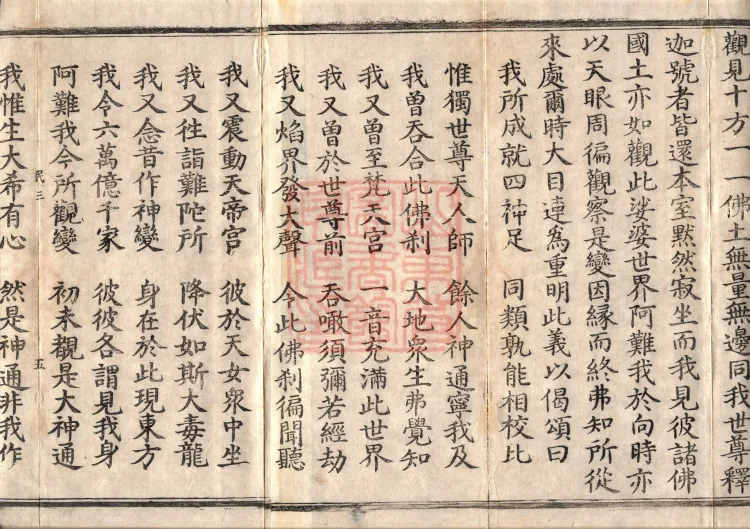 觀見十方一一佛土無量無邊同我世尊釋
迦號者皆還本室默然寂坐而我見彼諸佛
國土亦如觀此娑婆世界阿難我於向時亦
以天眼周徧觀察是變因緣而終弗知所從
來處爾時大目連為重明此義以偈頌曰
我所成就四神足　同類孰能相校比
惟獨世尊天人師　餘人神通寧我及
我曾吞合此佛刹　大地眾生弗覺知
我又曾至梵天宮　一音充滿此世界
我又曾於世尊前　吞噉須彌若經劫
我又焰界發大聲　令此佛刹徧聞聽
我又震動天帝宮　彼於天女眾中坐
我又往詣難陀所　降伏如斯大毒龍
我又念昔作神變　身在於此現東方
我令六萬億千家　彼彼各謂見我身
民三　五
阿難我今所觀變　初未覩是大神通
我惟生大希有心　然是神通非我作